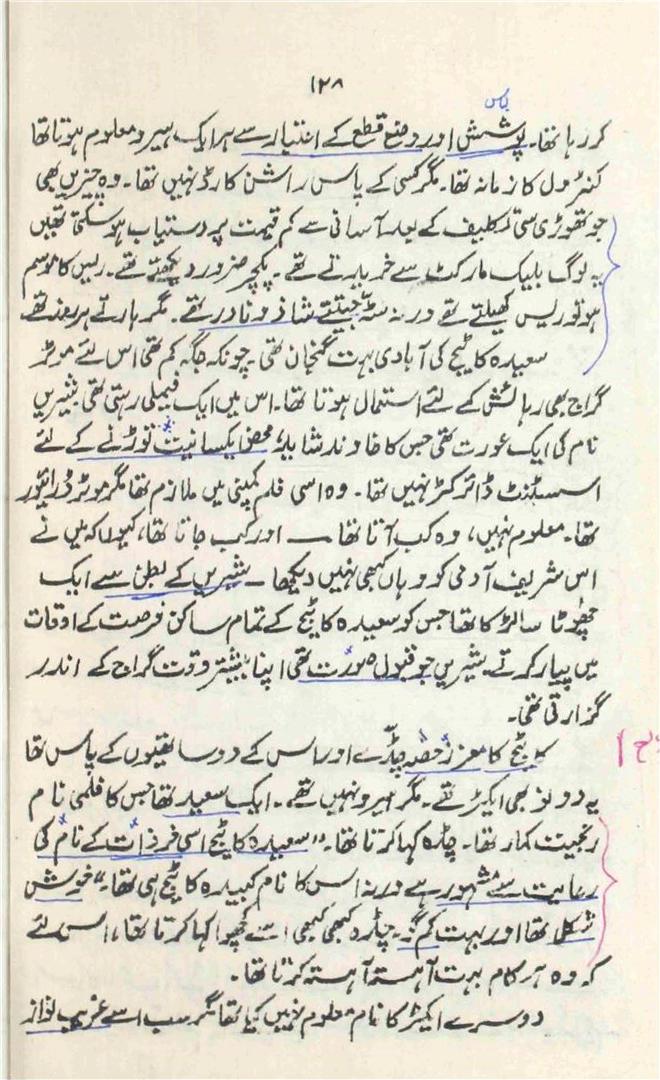 ۱۲۸
لباس
کر رہا تھا۔ پوشش اور وضع قطع کے اعتبار سے ہر ایک ہیرو معلوم ہوتا تھا
کنٹرول کا زمانہ تھا۔ مگر کسی کے پاس راشن کارڈ نہیں تھا۔ وہ چیزیں بھی
جو تھوڑی سی تکلیف کے بعد آسانی سے کم قیمت پر دستیاب ہو سکتی تھیں
یہ لوگ بلیک مارکٹ سے خریدتے تھے۔ پکچر ضرور دیکھتے تھے۔ ریس کا موسم
ہو تو ریس کھیلتے تھے ورنہ سٹہ۔ جیتتے شاذ و نادر تھے۔ مگر ہارتے ہر روز تھے
سعیدہ کاٹیج کی آبادی بہت گنجان تھی۔ چونکہ جگہ کم تھی اس لئے موٹر
گراج بھی رہائش کے لئے استعمال ہوتا تھا۔ اس میں ایک فیملی رہتی تھی شیریں
نام کی ایک عورت تھی جس کا خاوند شاید محض یکسانیت توڑنے کے لئے
اسسٹنٹ ڈائرکٹر نہیں تھا۔ وہ اسی فلم کمپنی میں ملازم تھا مگر موٹر ڈرائیور
تھا۔ معلوم نہیں، وہ کب آتا تھا — اور کب جاتا تھا، کیوں کہ میں نے
اس شریف آدمی کو وہاں کبھی نہیں دیکھا۔ شیریں کے بطن سے ایک
چھوٹا سا لڑکا تھا جس کو سعیدہ کاٹیج کے تمام ساکن فرصت کے اوقات
میں پیار کرتے۔ شیریں جو قبول صورت تھی اپنا بیشتر وقت گراج کے اندر
گزارتی تھی۔
کاٹیج کا معزز حصہ چڈے اور اس کے دو ساتھیوں کے پاس تھا
یہ دونو بھی ایکٹر تھے۔ مگر ہیرو نہیں تھے۔ ایک سعید تھا جس کا فلمی نام
رنجیت کمار تھا۔ چڈہ کہا کرتا تھا۔ "سعیدہ کاٹیج اسی خر ذات کے نام کی
رعایت سے مشہور ہے ورنہ اس کا نام کبیدہ کاٹیج ہی تھا۔" خوش
شکل تھا اور بہت کم گو۔ چڈہ کبھی کبھی اسے کچھوا کہا کرتا تھا، اس لئے
کہ وہ ہر کام بہت آہستہ آہستہ کرتا تھا۔
دوسرے ایکٹر کا نام معلوم نہیں کیا تھا مگر سب اسے غریب نواز